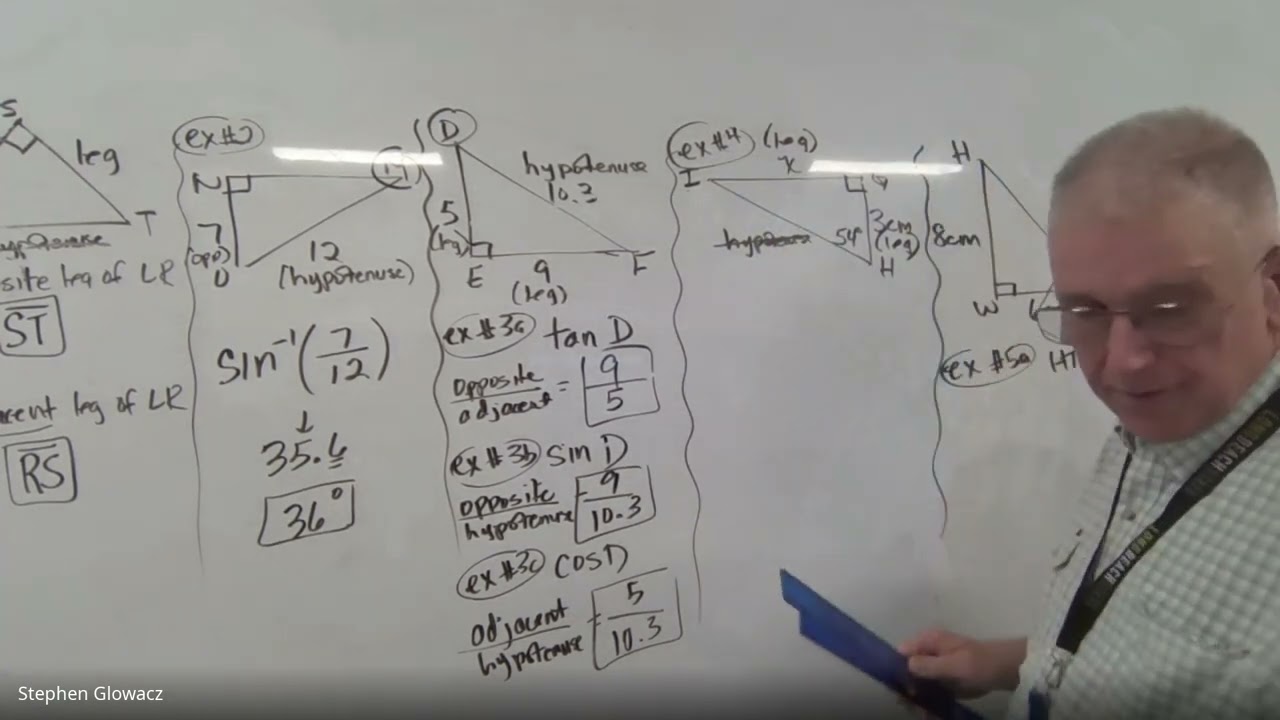 S
leg
T
hypotenuse
site leg of LR
ST
cent leg of LR
RS
ex#2
N
7
(opp)
12
(hypotenuse)
sin⁻¹(7/12)
↓
35.6
36°
D
hypotenuse
10.3
5
(leg)
E
9
(leg)
F
ex#3a tan D
opposite/adjacent = 9/5
ex#3b sin D
opposite/hypotenuse = 9/10.3
ex#3c cos D
adjacent/hypotenuse = 5/10.3
ex#4 (leg)
I
x
hypotenuse
54°
3cm
(leg)
H
H
8cm
W
ex#5a HT
Stephen Glowacz
LONG BEACH
LONG BEACH